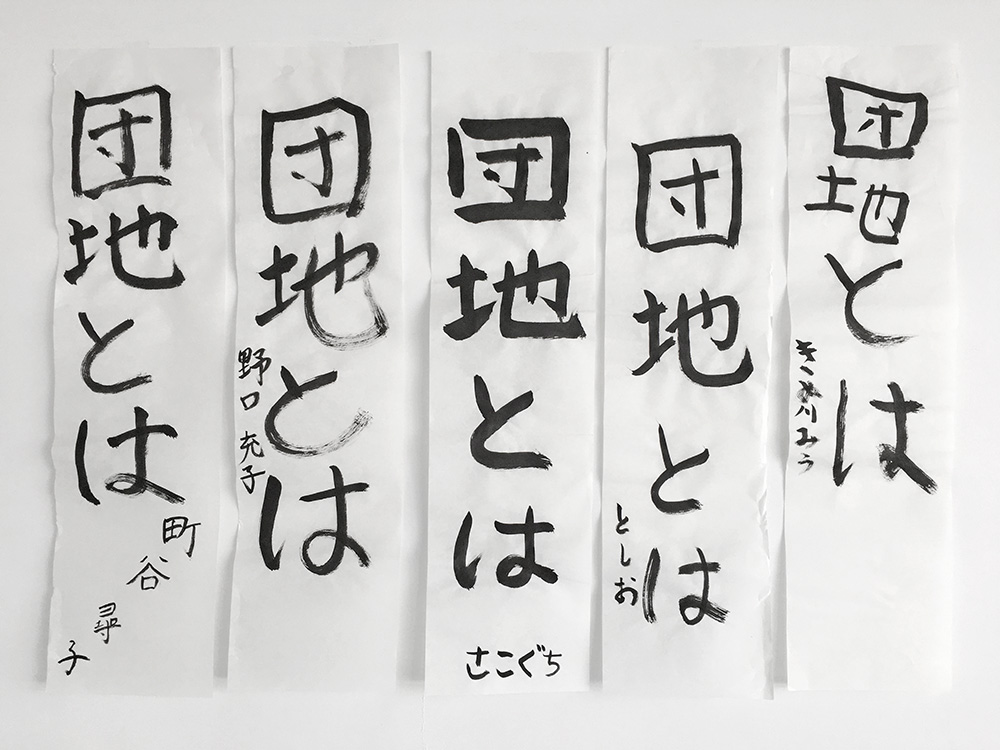 団地とは
団地とは
としお
団地とは
さこぐち
団地とは
野口 充子
団地とは
町谷尋子